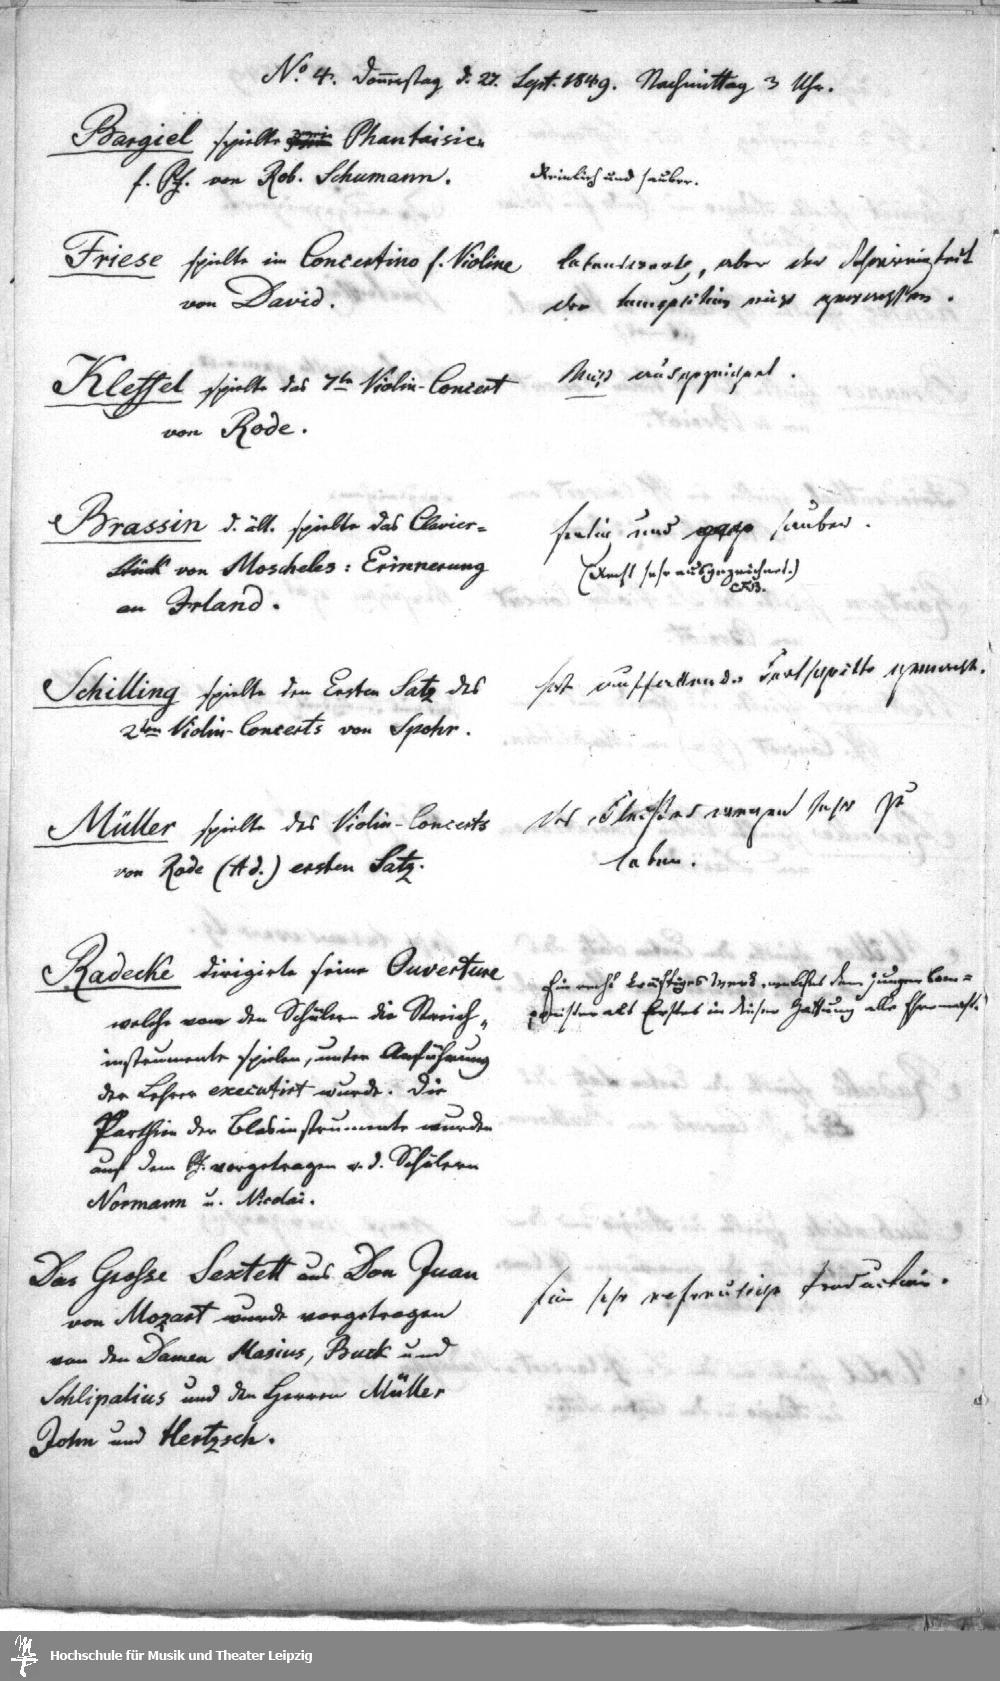 No. 4. Donnerstag d. 27. Sept. 1849. Nachmittag 3 Uhr.
Bargiel spielte zwei Phantaisien
f. Pf. von Rob. Schumann.
Reinlich und sauber.
Friese spielte im Concertino f. Violine
von David.
lobenswerth, aber der Schwierigkeit
der Composition nicht gewachsen.
Kleffel spielte das 7te Violin-Concert
von Rode.
Nicht ausgezeichnet.
Brassin d. ält. spielte das Clavier-
stück von Moscheles: Erinnerung
an Irland.
fertig und sauber.
(Recht sehr ausgezeichnet.)
Schilling spielte den Ersten Satz des
2ten Violin-Concerts von Spohr.
hat auffallende Fortschritte gemacht.
Müller spielte des Violin-Concerts
von Rode (A d.) ersten Satz.
des Fleißes wegen sehr zu
loben.
Radecke dirigirte seine Ouverture
welche von den Schülern die Streich-
instrumente spielen, unter Anführung
der Lehrer executirt wurde. Die
Parthien der Blasinstrumente wurden
auf dem Pf. vorgetragen v. d. Schülern
Normann u. Nicolai.
Ein recht kräftiges Werk, welches dem jungen Com-
ponisten als Erstes in dieser Gattung alle Ehre macht.
Das Grosse Sextett aus Don Juan
von Mozart wurde vorgetragen
von den Damen Masius, Buck und
Schlipalius und den Herren Müller
John und Hertzsch.
Eine sehr erfreuliche Production.
Hochschule für Musik und Theater Leipzig